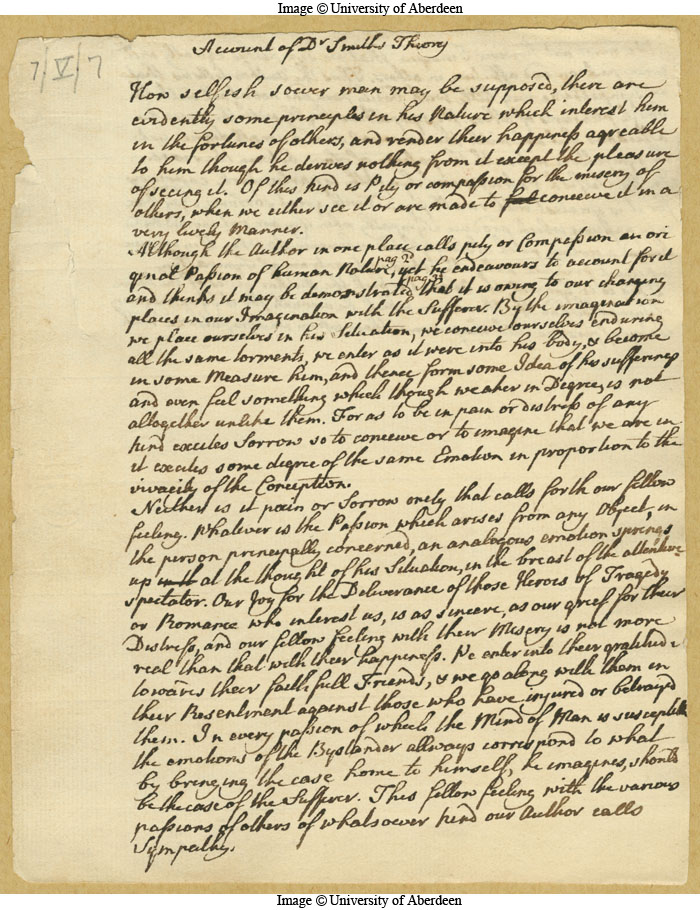 Image © University of Aberdeen
7/V/7
Account of Dr Smiths Theory
How selfish soever man may be supposed, there are
evidently some principles in his Nature which interest him
in the fortunes of others, and render their happiness agreable
to him though he derives nothing from it except the pleasure
of seeing it. Of this kind is Pity or compassion for the misery of
others, when we either see it or are made to conceive it in a
very lively Manner.
Although the Author in one place calls pity or Compassion an ori
ginal Passion of human Nature, pag 2d yet he endeavours to account for it
and thinks it may be demonstrated pag 3d that it is owing to our changing
places in our Imagination with the Sufferer. By the imagination
we place ourselves in his Situation, we conceive ourselves enduring
all the same torments, we enter as it were into his body, & become
in some Measure him, and thence form some Idea of his sufferings
and even feel something which though weaker in Degree, is not
altogether unlike them. For as to be in pain or distress of any
kind excites Sorrow so to conceive or to imagine that we are in
it excites some degree of the same Emotion in proportion to the
vivacity of the Conception.
Neither is it pain or Sorrow onely that calls forth our fellow
feeling. Whatever is the Passion which arises from any Object, in
the person principally concerned, an analogous emotion springs
up at the thought of his Situation, in the breast of the attentive
spectator. Our Joy for the Deliverance of those Heroes of Tragedy
or Romance who interest us, is as sincere, as our grief for their
Distress, and our fellow feeling with their Misery is not more
real than that with their happiness. We enter into their gratitude
towards their faithfull Friends, & we go along with them in
their Resentment against those who have injured or betrayed
them. In every passion of which the Mind of Man is susceptible
the emotions of the Bystander allways correspond to what
by bringing the case home to himself, he imagines, should
be the case of the Sufferer. This fellow feeling with the various
passions of others of whatsoever kind our Author calls
Sympathy.
Image © University of Aberdeen